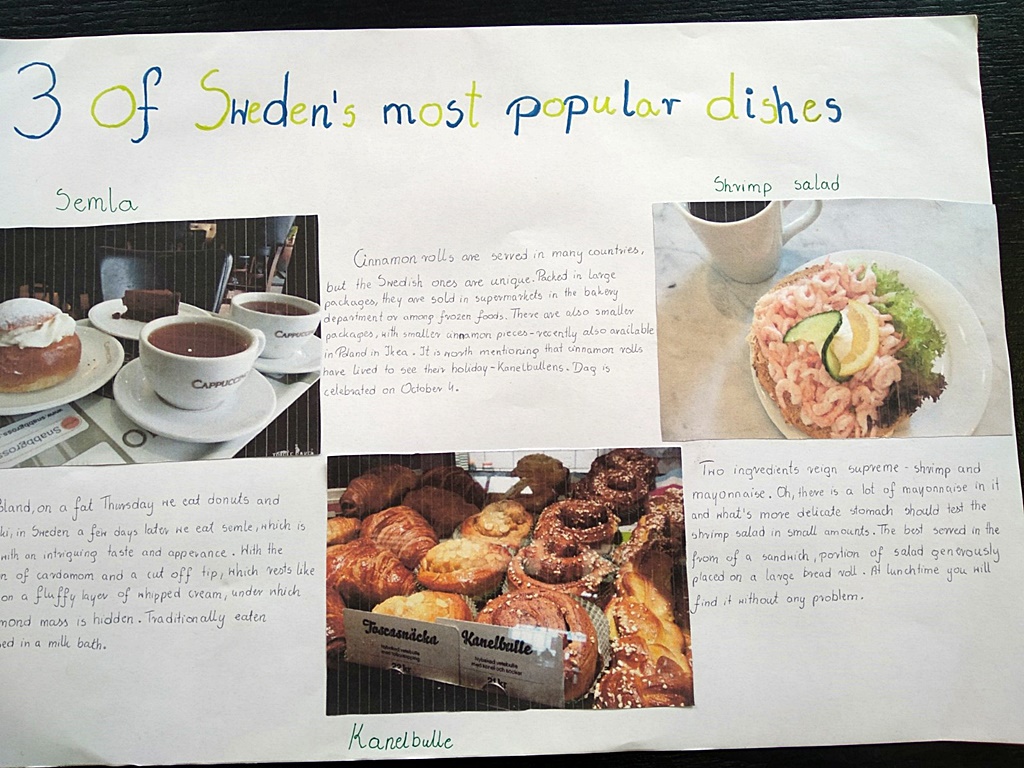 3 Of Sweden's most popular dishes
Semla
Shrimp salad
Cinnamon rolls are served in many countries,
but the Swedish ones are unique. Packed in large
packages, they are sold in supermarkets in the bakery
department or among frozen foods. There are also smaller
packages, with smaller cinnamon pieces - recently also available
in Poland in Ikea. It is worth mentioning that cinnamon rolls
have lived to see their holiday - Kanelbullens. Dag is
celebrated on October 4.
CAPPUCC
CAPPUCC
Snabbgross
land, on a fat Thursday we eat donuts and
ki, in Sweden a few days later we eat semle, which is
with an intriguing taste and apperance. With the
n of cardamom and a cut off tip, which rests like
on a fluffy layer of whipped cream, under which
mond mass is hidden. Traditionally eaten
ed in a milk bath.
Toscasnäcka
Kanelbulle
Nybakad vetebulle
med kanel och socker
22 kr
21 kr
Kanelbulle
Two ingredients reign supreme - shrimp and
mayonnaise. Oh, there is a lot of mayonnaise in it
and what's more delicate stomach should test the
shrimp salad in small amounts. The best served in the
from of a sandwich, portion of salad generously
placed on a large bread roll. At lunchtime you will
find it without any problem.